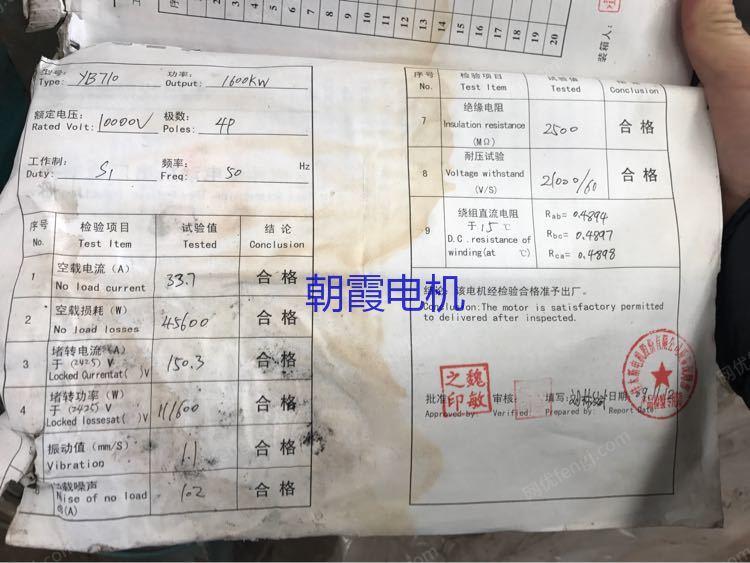 序号
11
12
13
14
15
16
17
18
19
20
装箱人:
型号:
Type: YB710
功率:
Output: 1600KW
额定电压:
Rated Volt: 10000V
极数:
Poles: 4P
工作制:
Duty: S1
频率:
Freq: 50 Hz
序号 检验项目 试验值 结 论
No. Test Item Tested Conclusion
1 空载电流(A) 33.7 合格
No load current
2 空载损耗(W) 45600 合格
No load losses
3 堵转电流(A) 150.3 合格
于(2425)V
Locked Currentat( )V
4 堵转功率(W) 合格
于(2425)V
Locked lossesat( )V
振动值(mm/S) 1.1 合格
Vibration
载噪声 102 合格
Nise of no load
(A)
序号 检验项目 试验值
No. Test Item Tested Conclusion
7 绝缘电阻 2500 合格
Insulation resistance
(MΩ)
8 耐压试验 21000/60 合格
Voltage withstand
(V/S)
9 绕组直流电阻 Rab= 0.4894
于 15 ℃ Rbc= 0.4897
D.C.resistance of Rca= 0.4898
winding(at ℃)
结论:该电机经检验合格准予出厂。
Conclusion:The motor is satisfactory permitted
to delivered after inspected.
魏敏之印
批准 审核: 填写: 日期
Approved by: Verified Prepared by: Report Date
朝霞电机